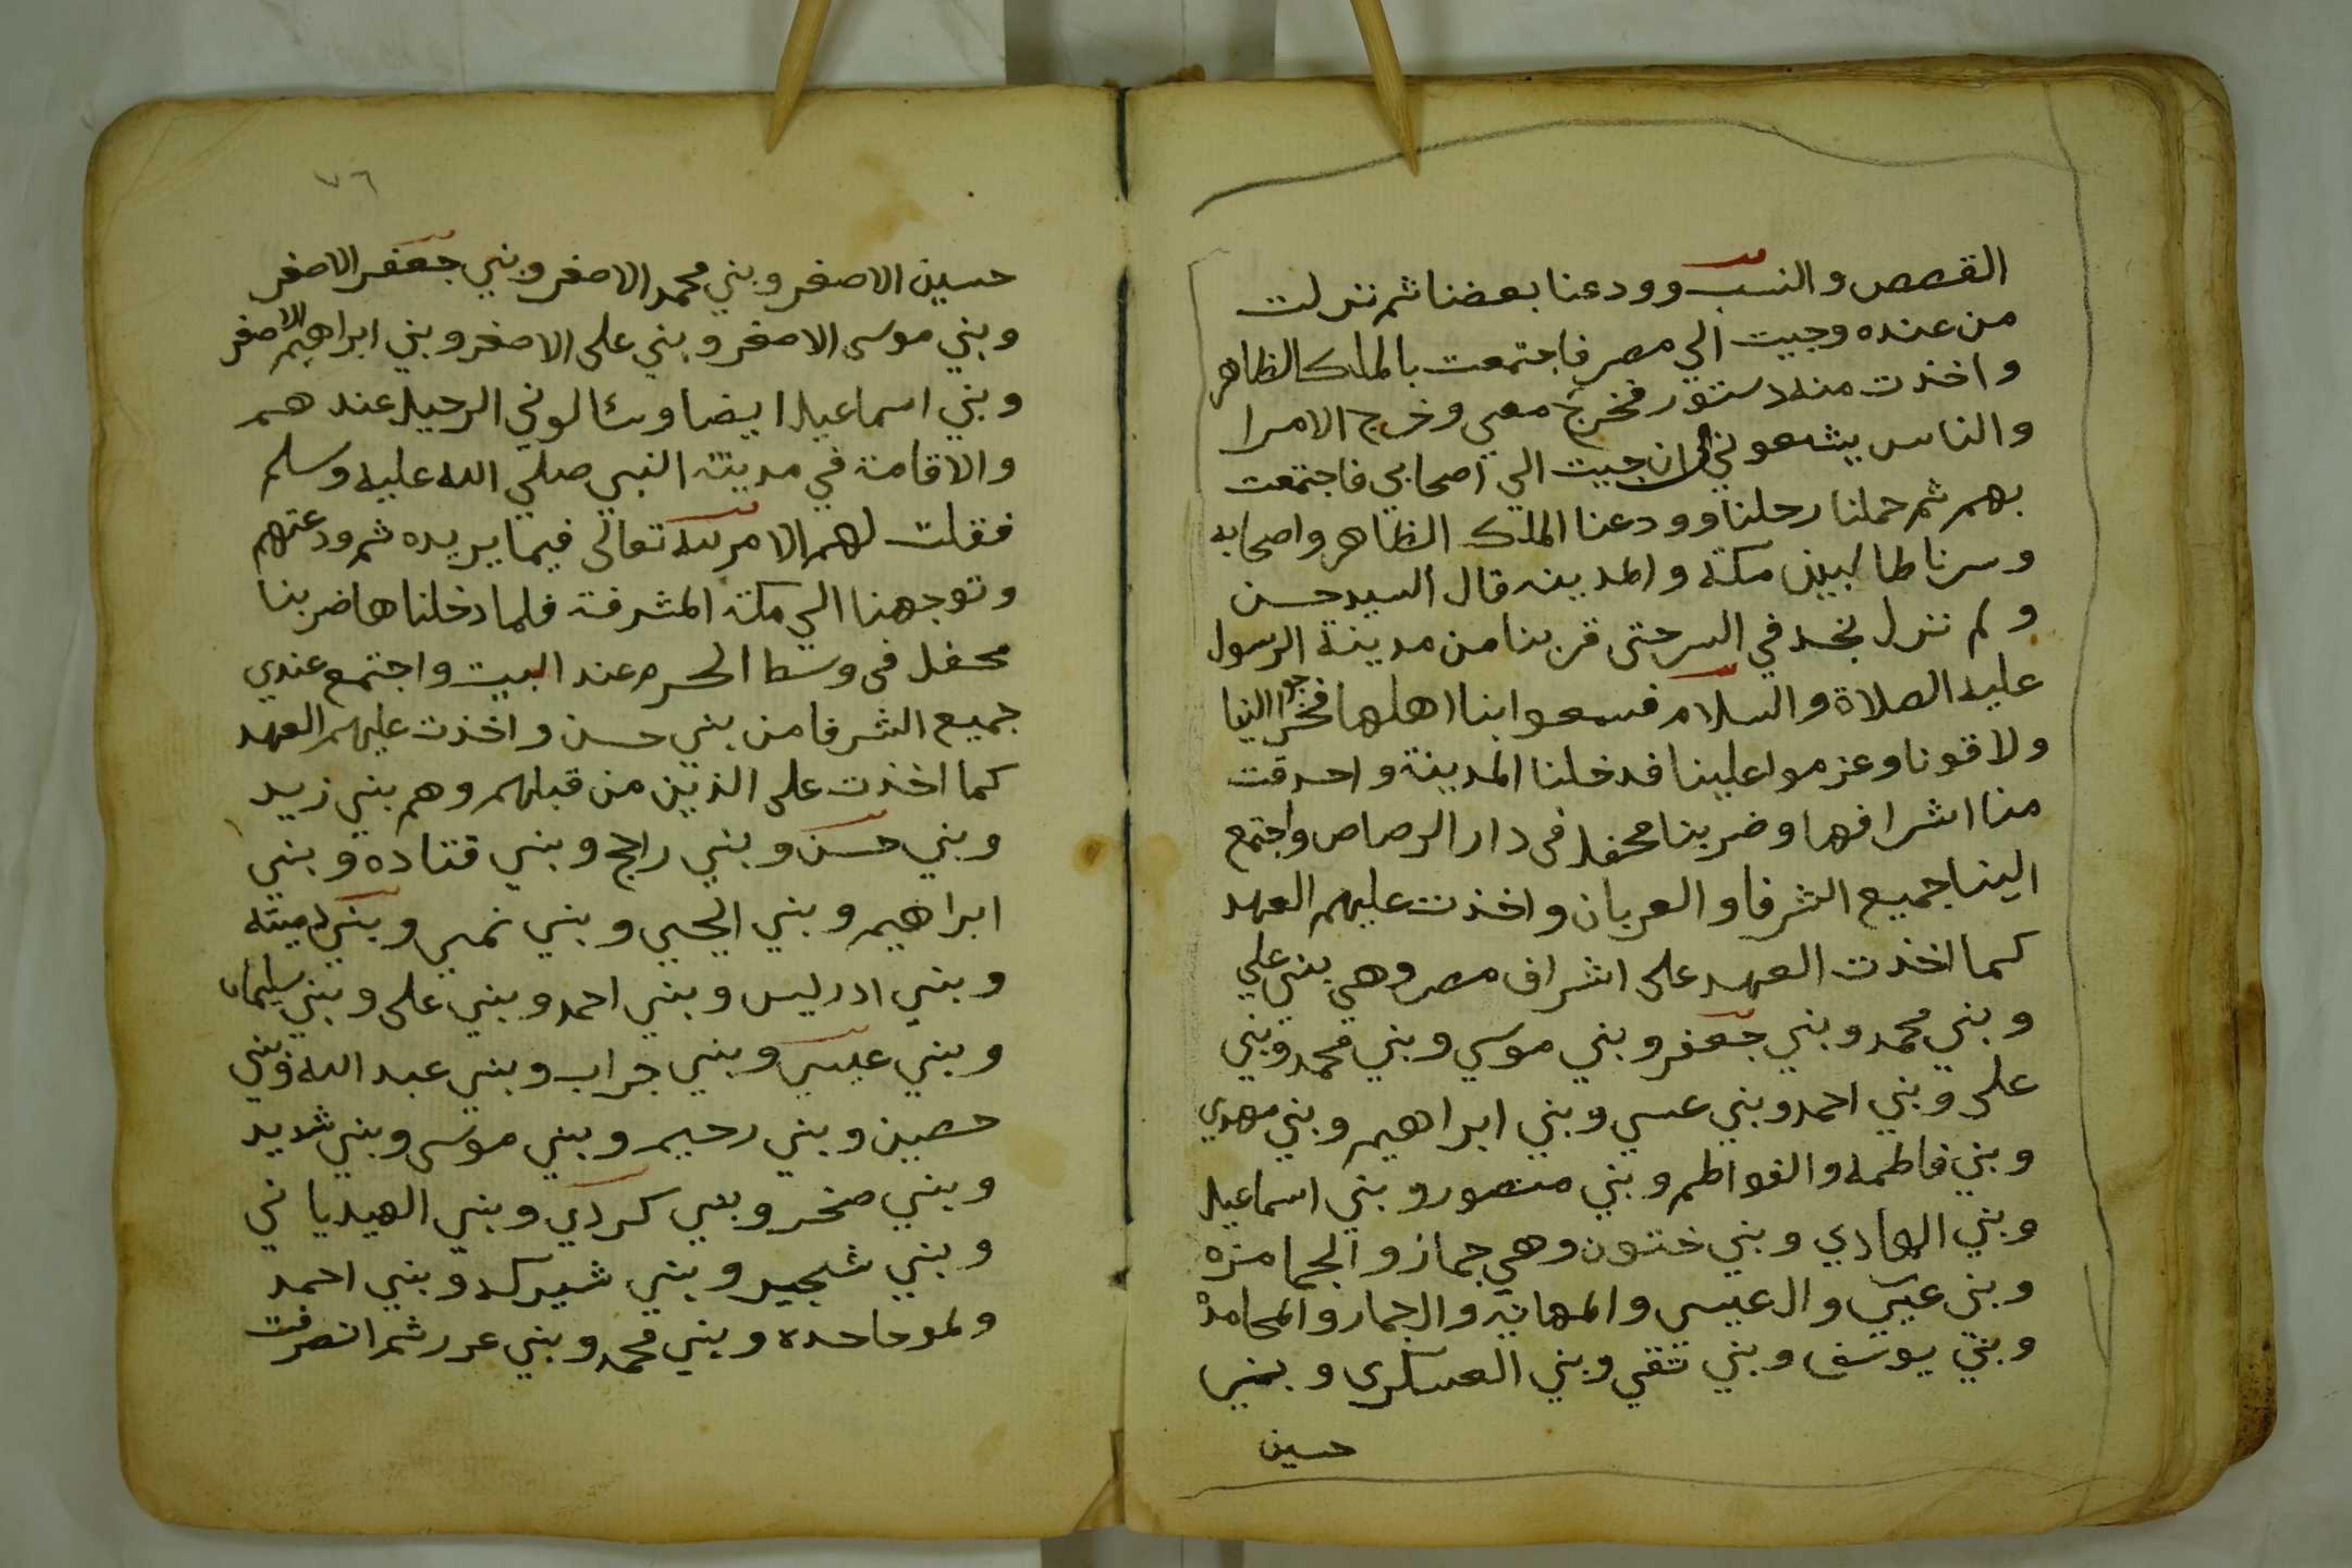 القصص والنسب وودعنا بعضنا ثم نزلت
من عنده وجيت الي مصر فاجتمعت بالملك الظاهر
واخذت منه دستور فخرج معي وخرج الامرا
والناس يشعوني الي ان جيت الي اصحابي فاجتمعت
بهم ثم حملنا رحلنا وودعنا الملك الظاهر واصحابه
وسرنا طالبين مكة والمدينه قال السيد حسن
ولم نزل نجد في السر حتى قربنا من مدينة الرسول
عليه الصلاة والسلام فسمعوا بنا اهلها فخرجوا الينا
ولاقونا وعزموا علينا فدخلنا المدينة واحدقت
منا اشرافها وضربنا محفل في دار الرصاص واجتمع
الينا جميع الشرفا والعربان واخذت عليهم العهد
كما اخذت العهد على اشراف مصر وهي بني علي
وبني محمد وبني جعفر وبني موسي وبني محمد وبني
على وبني احمد وبني عسي وبني ابراهيم وبني مهدي
وبني فاطمه والفواطم وبني منصور وبني اسماعيل
وبني الهادي وبني ختون وهي جماز والجمامزه
وبني عيسي وال عيسى والمهانيه والجمار والمحامدة
وبني يوسف وبني ثقي وبني العسكري وبني
حسين
٧٦
حسين الاصغر وبني محمد الاصغر وبني جعفر الاصغر
وبني موسى الاصغر وبني على الاصغر وبني ابراهيم الاصغر
وبني اسماعيل ايضا وسئالوني الرحيل عندهم
والاقامة في مدينة النبي صلي الله عليه وسلم
فقلت لهم الامر لله تعالى فيما يريده ثم ودعتهم
وتوجهنا الي مكة المشرفة فلما دخلناها ضربنا
محفل في وسط الحرم عند البيت واجتمع عندي
جميع الشرفا من بني حسن واخذت عليهم العهد
كما اخذت على الذين من قبلهم وهم بني زيد
وبني حسن وبني راجح وبني قتاده وبني
ابراهيم وبني الحي وبني نمي وبني رميثه
وبني ادريس وبني احمد وبني على وبني سليمان
وبني عيسى وبني جراب وبني عبد الله وبني
حصين وبني رحيم وبني موسى وبني شديد
وبني صخر وبني كردي وبني الهيدياني
وبني شجير وبني شيرك وبني احمد
وبني محمد وبني عرر ثم انصرفت